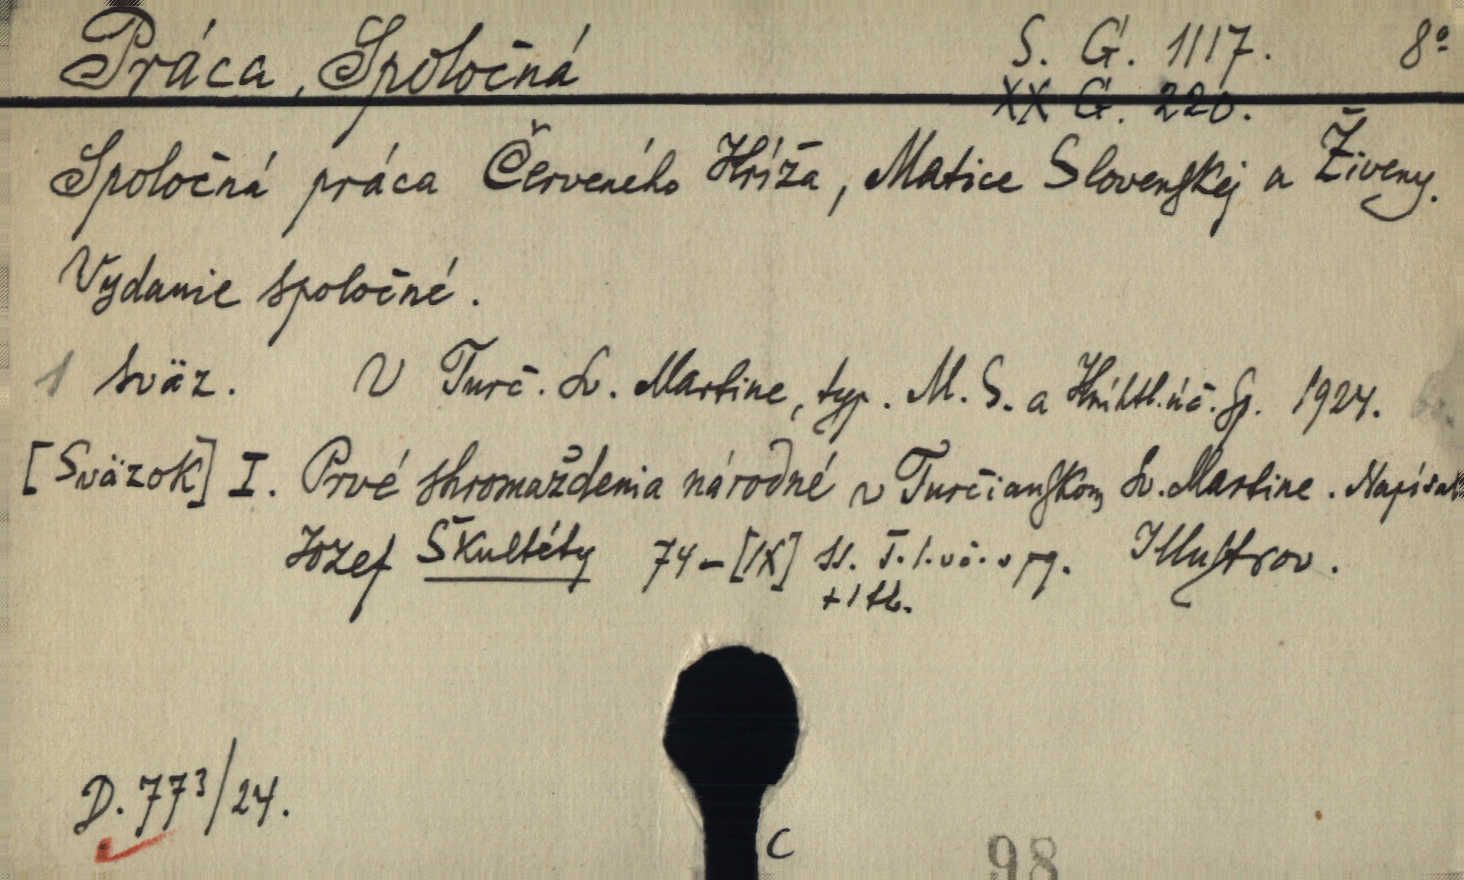 Práca, Spoločná S. G. 1117. 8°
XX G. 220.
Spoločná práca Červeného Kríža, Matice Slovenskej a Živeny.
Vydanie spoločné.
1 sväz. V Turč. Sv. Martine, typ. M. S. a Kníhtl. úč. sp. 1924.
[Sväzok] I. Prvé shromaždenia národné v Turčianskom Sv. Martine. Napísal
Jozef Škultéty 74-[IX] ss. Illustrov.
+1 tb.
D. 773/24.
C
98